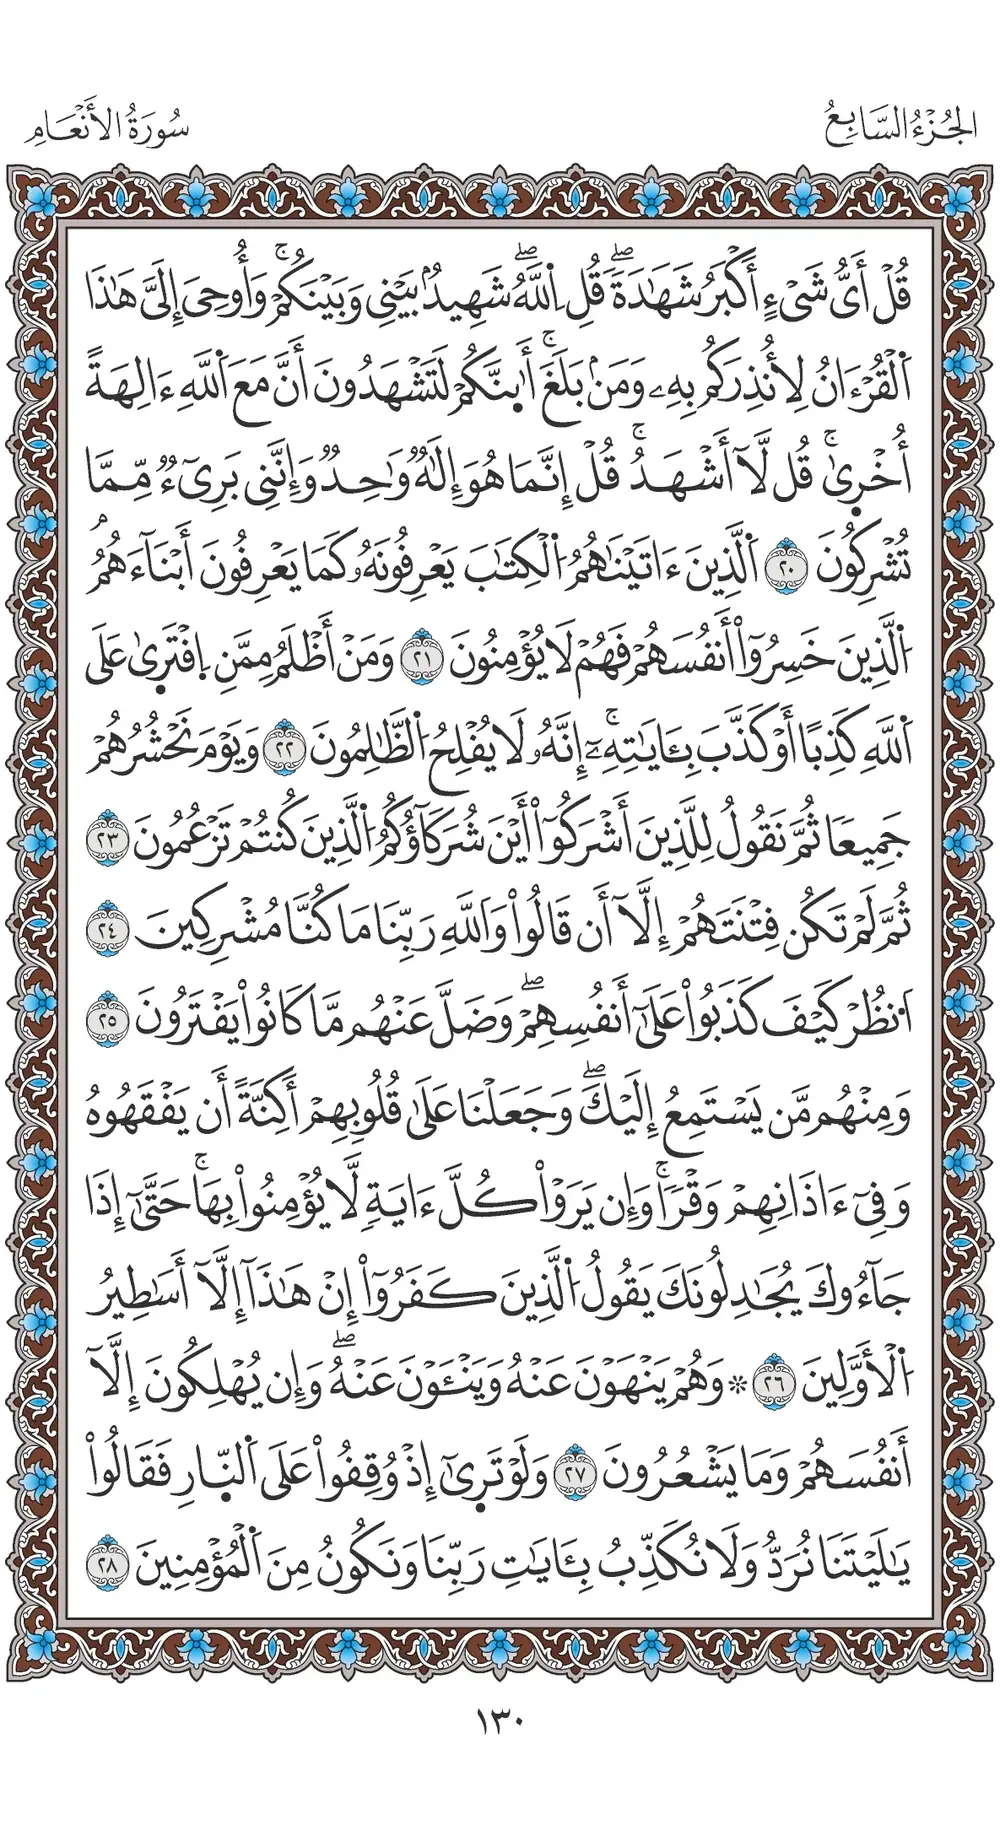 الجُزْءُ السَّابِعُ
سُورَةُ الأَنْعَامِ
قُلْ أَىُّ شَىْءٍ أَكْبَرُ شَهَٰدَةࣰۖ قُلِ اِ۬للَّهُۖ شَهِيدُۢ بَيْنِى وَبَيْنَكُمْۚ وَأُوحِىَ إِلَىَّ هَٰذَا
اَ۬لْقُرْءَانُ لِأُنذِرَكُم بِهِۦ وَمَنۢ بَلَغَۚ أَٮ۪ٕنَّكُمْ لَتَشْهَدُونَ أَنَّ مَعَ اَ۬للَّهِ ءَالِهَةً
أُخْر۪ىٰۚ قُل لَّآ أَشْهَدُۚ قُلْ إِنَّمَا هُوَ إِلَٰهࣱ وَٰحِدࣱ وَإِنَّنِى بَرِىٓءࣱ مِّمَّا
تُشْرِكُونَ ٢٠ اَ۬لَّذِينَ ءَاتَيْنَٰهُمُ اُ۬لْكِتَٰبَ يَعْرِفُونَهُۥ كَمَا يَعْرِفُونَ أَبْنَآءَهُمُ
اُ۬لَّذِينَ خَسِرُوٓاْ أَنفُسَهُمْ فَهُمْ لَا يُؤْمِنُونَ ٢١ وَمَنْ أَظْلَمُ مِمَّنِ اِ۪فْتَر۪ىٰ عَلَى
اَ۬للَّهِ كَذِبًا أَوْ كَذَّبَ بِـَٔايَٰتِهِۦٓۚ إِنَّهُۥ لَا يُفْلِحُ اُ۬لظَّٰلِمُونَ ٢٢ وَيَوْمَ نَحْشُرُهُمْ
جَمِيعࣰا ثُمَّ نَقُولُ لِلَّذِينَ أَشْرَكُوٓاْ أَيْنَ شُرَكَآؤُكُمُ اُ۬لَّذِينَ كُنتُمْ تَزْعُمُونَ ٢٣
ثُمَّ لَمْ تَكُن فِتْنَتَهُمْ إِلَّآ أَن قَالُواْ وَاَ۬للَّهِ رَبِّنَا مَا كُنَّا مُشْرِكِينَ ٢٤
اَ۟نظُرْ كَيْفَ كَذَبُواْ عَلَىٰٓ أَنفُسِهِمْۖ وَضَلَّ عَنْهُم مَّا كَانُواْ يَفْتَرُونَ ٢٥
وَمِنْهُم مَّن يَسْتَمِعُ إِلَيْكَۖ وَجَعَلْنَا عَلَىٰ قُلُوبِهِمْ أَكِنَّةً أَن يَفْقَهُوهُ
وَفِىٓ ءَاذَانِهِمْ وَقْرࣰاۚ وَإِن يَرَوْاْ كُلَّ ءَايَةࣲ لَّا يُؤْمِنُواْ بِهَاۚ حَتَّىٰٓ إِذَا
جَآءُوكَ يُجَٰدِلُونَكَ يَقُولُ اُ۬لَّذِينَ كَفَرُوٓاْ إِنْ هَٰذَآ إِلَّآ أَسَٰطِيرُ
اُ۬لْأَوَّلِينَ ٢٦ * وَهُمْ يَنْهَوْنَ عَنْهُ وَيَنْـَٔوْنَ عَنْهُۖ وَإِن يُهْلِكُونَ إِلَّآ
أَنفُسَهُمْ وَمَا يَشْعُرُونَ ٢٧ وَلَوْ تَر۪ىٰٓ إِذْ وُقِفُواْ عَلَى اَ۬لنّ۪ارِ فَقَالُواْ
يَٰلَيْتَنَا نُرَدُّ وَلَا نُكَذِّبُ بِـَٔايَٰتِ رَبِّنَا وَنَكُونُ مِنَ اَ۬لْمُؤْمِنِينَ ٢٨
١٣٠